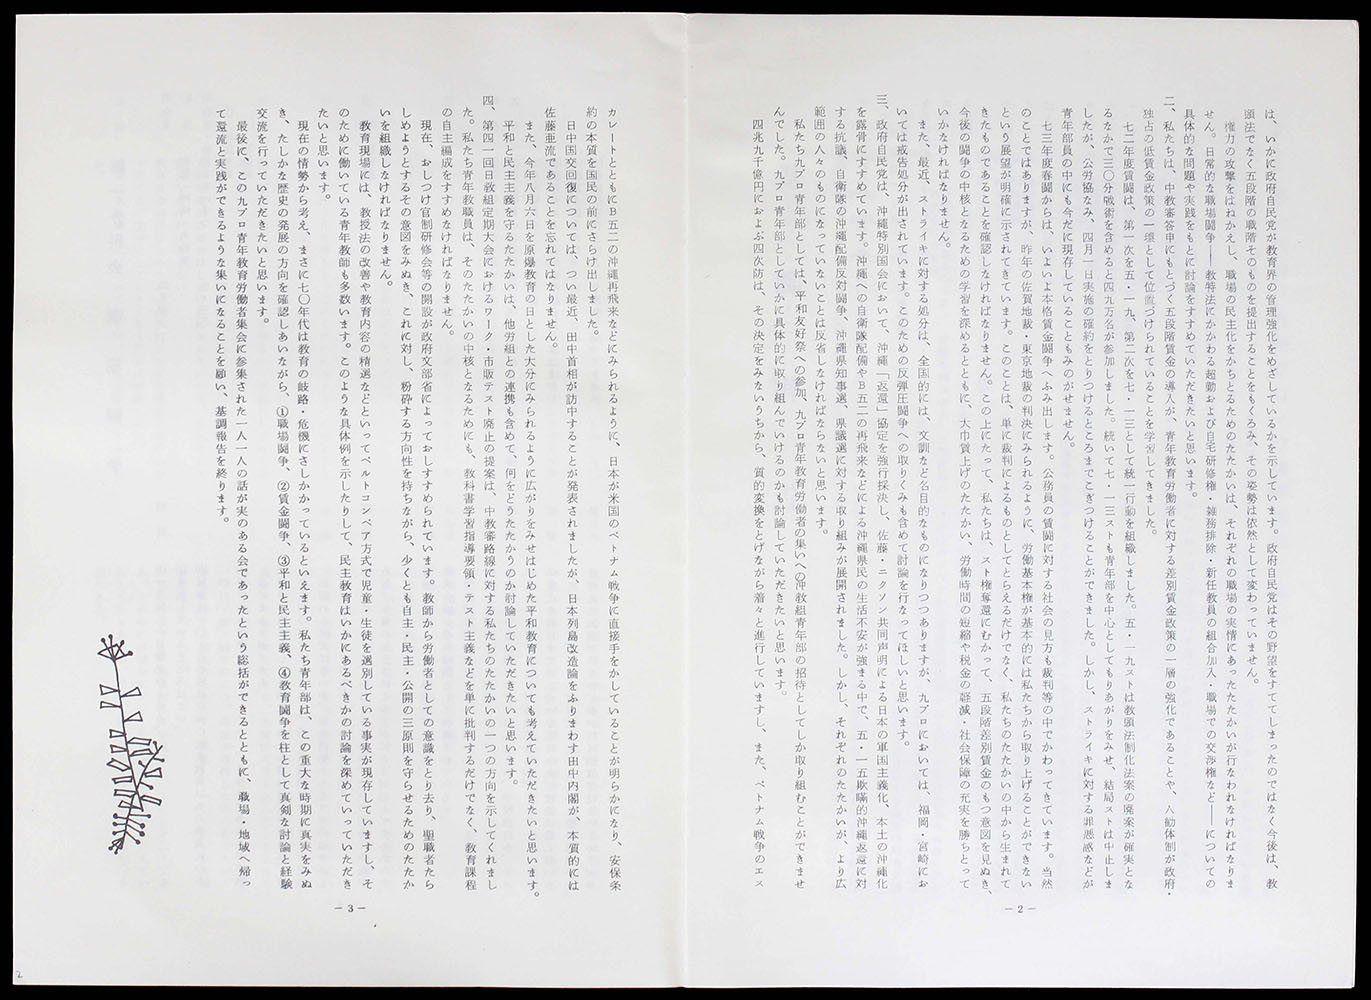 は、いかに政府自民党が教育界の管理強化をめざしているかを示しています。政府自民党はその野望をすててしまったのではなく今後は、教
頭法でなく五段階の職階そのものを提出することをもくろみ、その姿勢は依然として変わっていません。
権力の攻撃をはねかえし、職場の民主化をかちとるためのたたかいは、それぞれの職場の実情にあったたたかいが行なわれなければなりま
せん。日常的な職場闘争――教特法にかかわる超勤および自宅研修権・雑務排除・新任教員の組合加入・職場での交渉権など――についての
具体的な問題や実践をもとに討論をすすめていただきたいと思います。
二、私たちは、中教審答申にもとづく五段階賃金の導入が、青年教育労働者に対する差別賃金政策の一層の強化であることや、人勧体制が政府・
独占の低賃金政策の一環として位置づけられていることを学習してきました。
七二年度賃闘は、第一次を五・一九、第二次を七・一三として統一行動を組織しました。五・一九ストは教頭法制化法案の廃案が確実とな
るなかで三〇分戦術を含めると四九万名が参加しました。続いて七・一三ストも青年部を中心としてもりあがりをみせ、結局ストは中止しま
したが、公労協なみ、四月一日実施の確約をとりつけるところまでこぎつけることができました。しかし、ストライキに対する罪悪感などが
青年部員の中にも今だに現存していることものがせません。
七三年度春闘からは、いよいよ本格賃金闘争へふみ出します。公務員の賃闘に対する社会の見方も裁判等の中でかわってきています。当然
のことではありますが、昨年の佐賀地裁・東京地裁の判決にみられるように、労働基本権が基本的には私たちから取り上げることができない
という展望が明確に示されてきています。このことは、単に裁判によるものとしてとらえるだけでなく、私たちのたたかいの中から生まれて
きたものであることを確認しなければなりません。この上にたって、私たちは、スト権奪還にむかって、五段階差別賃金のもつ意図を見ぬき、
今後の闘争の中核となるための学習を深めるとともに、大巾賃上げのたたかい、労働時間の短縮や税金の軽減・社会保障の充実を勝ちとって
いかなければなりません。
また、最近、ストライキに対する処分は、全国的には、文訓など名目的なものになりつつありますが、九ブロにおいては、福岡・宮崎にお
いては戒告処分が出されています。このための反弾圧闘争への取りくみも含めて討論を行なってほしいと思います。
三、政府自民党は、沖縄特別国会において、沖縄「返還」協定を強行採決し、佐藤・ニクソン共同声明による日本の軍国主義化、本土の沖縄化
を露骨にすすめています。沖縄への自衛隊配備やＢ五二の再飛来などによる沖縄県民の生活不安が強まる中で、五・一五欺瞞的沖縄返還に対
する抗議、自衛隊の沖縄配備反対闘争、沖縄県知事選、県議選に対する取り組みが展開されました。しかし、それぞれのたたかいが、より広
範囲の人々のものになっていないことは反省しなければならないと思います。
私たち九ブロ青年部としては、平和友好祭への参加、九ブロ青年教育労働者の集いへの沖教組青年部の招待としてしか取り組むことができませ
んでした。九ブロ青年部としていかに具体的に取り組んでいけるのかも討論していただきたいと思います。
四兆九千億円におよぶ四次防は、その決定をみないうちから、質的変換をとげながら着々と進行していますし、また、ベトナム戦争のエス
－2－
カレートとともにＢ五二の沖縄再飛来などにみられるように、日本が米国のベトナム戦争に直接手をかしていることが明らかになり、安保条
約の本質を国民の前にさらけ出しました。
日中国交回復については、つい最近、田中首相が訪中することが発表されましたが、日本列島改造論をふりまわす田中内閣が、本質的には
佐藤亜流であることを忘れてはなりません。
また、今年八月六日を原爆教育の日とした大分にみられるように広がりをみせはじめた平和教育についても考えていただきたいと思います。
平和と民主主義を守るたたかいは、他労組との連携も含めて、何をどうたたかうのか討論していただきたいと思います。
四、第四一回日教組定期大会におけるワーク・市販テスト廃止の提案は、中教審路線に対する私たちのたたかいの一つの方向を示してくれまし
た。私たち青年教職員は、そのたたかいの中核となるためにも、教科書学習指導要領・テスト主義などを単に批判するだけでなく、教育課程
の自主編成をすすめなければなりません。
現在、おしつけ官制研修会等の開設が政府文部省によっておしすすめられています。教師から労働者としての意識をとり去り、聖職者たら
しめようとするその意図をみぬき、これに対し、粉砕する方向性を持ちながら、少くとも自主・民主・公開の三原則を守らせるためのたたか
いを組織しなければなりません。
教育現場には、教授法の改善や教育内容の精選などといってベルトコンベア方式で児童・生徒を選別している事実が現存していますし、そ
のために働いている青年教師も多数います。このような具体例を示したりして、民主教育はいかにあるべきかの討論を深めていっていただき
たいと思います。
現在の情勢から考え、まさに七〇年代は教育の岐路・危機にさしかかっているといえます。私たち青年部は、この重大な時期に真実をみぬ
き、たしかな歴史の発展の方向を確認しあいながら、①職場闘争、②賃金闘争、③平和と民主主義、④教育闘争を柱として真剣な討論と経験
交流を行っていただきたいと思います。
最後に、この九ブロ青年教育労働者集会に参集された一人一人の話が実のある会であったという総括ができるとともに、職場・地域へ帰っ
て還流と実践ができるような集いになることを願い、基調報告を終ります。
－3－
2